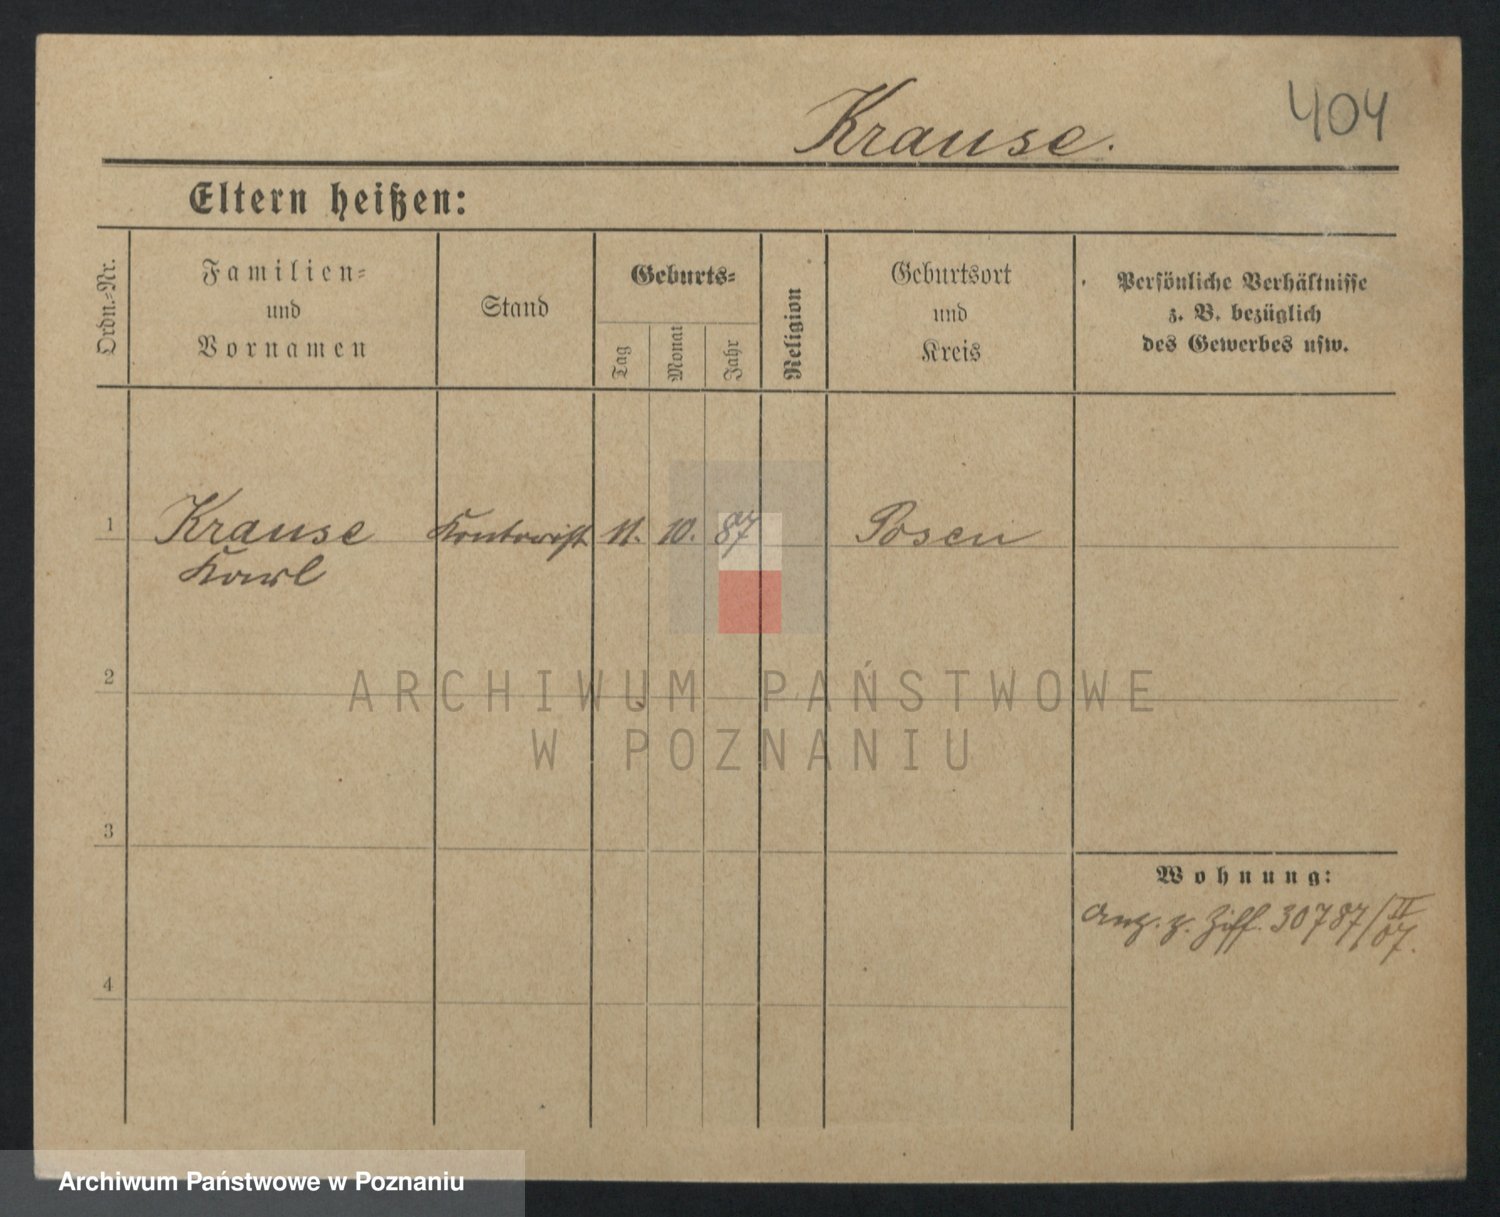 404
Krause.
Eltern heißen:
Ordn.-Nr.
Familien-
und
Vornamen
Stand
Geburts-
Tag
Monat
Jahr
Religion
Geburtsort
und
Kreis
Persönliche Verhältnisse
z. B. bezüglich
des Gewerbes usw.
1 Krause Kontorist 11. 10. 87 Posen
Karl
2
ARCHIWUM PAŃSTWOWE
W POZNANIU
3
Wohnung:
Anz. z. Ziff. 30787/II
07.
4
Archiwum Państwowe w Poznaniu